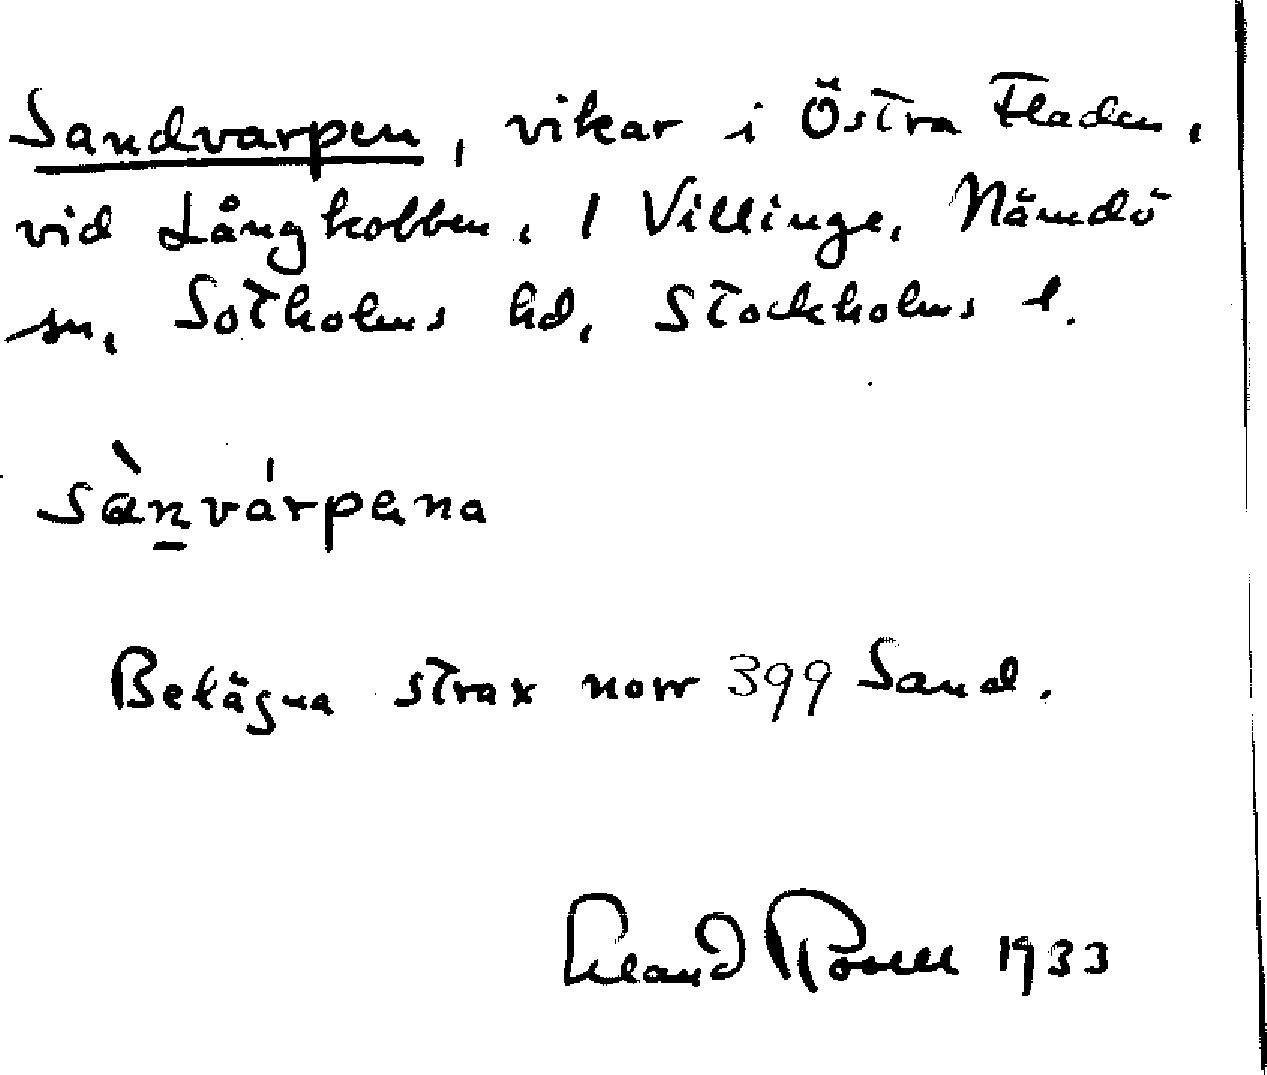 Sandvarpen, vikar i Östra Fladen,
vid Långkobben, 1 Villinge, Nämdö
sn, Sotholms hd, Stockholms l.
sànvárpena
Belägna strax norr 399 Sand.
Erland Rosell 1933